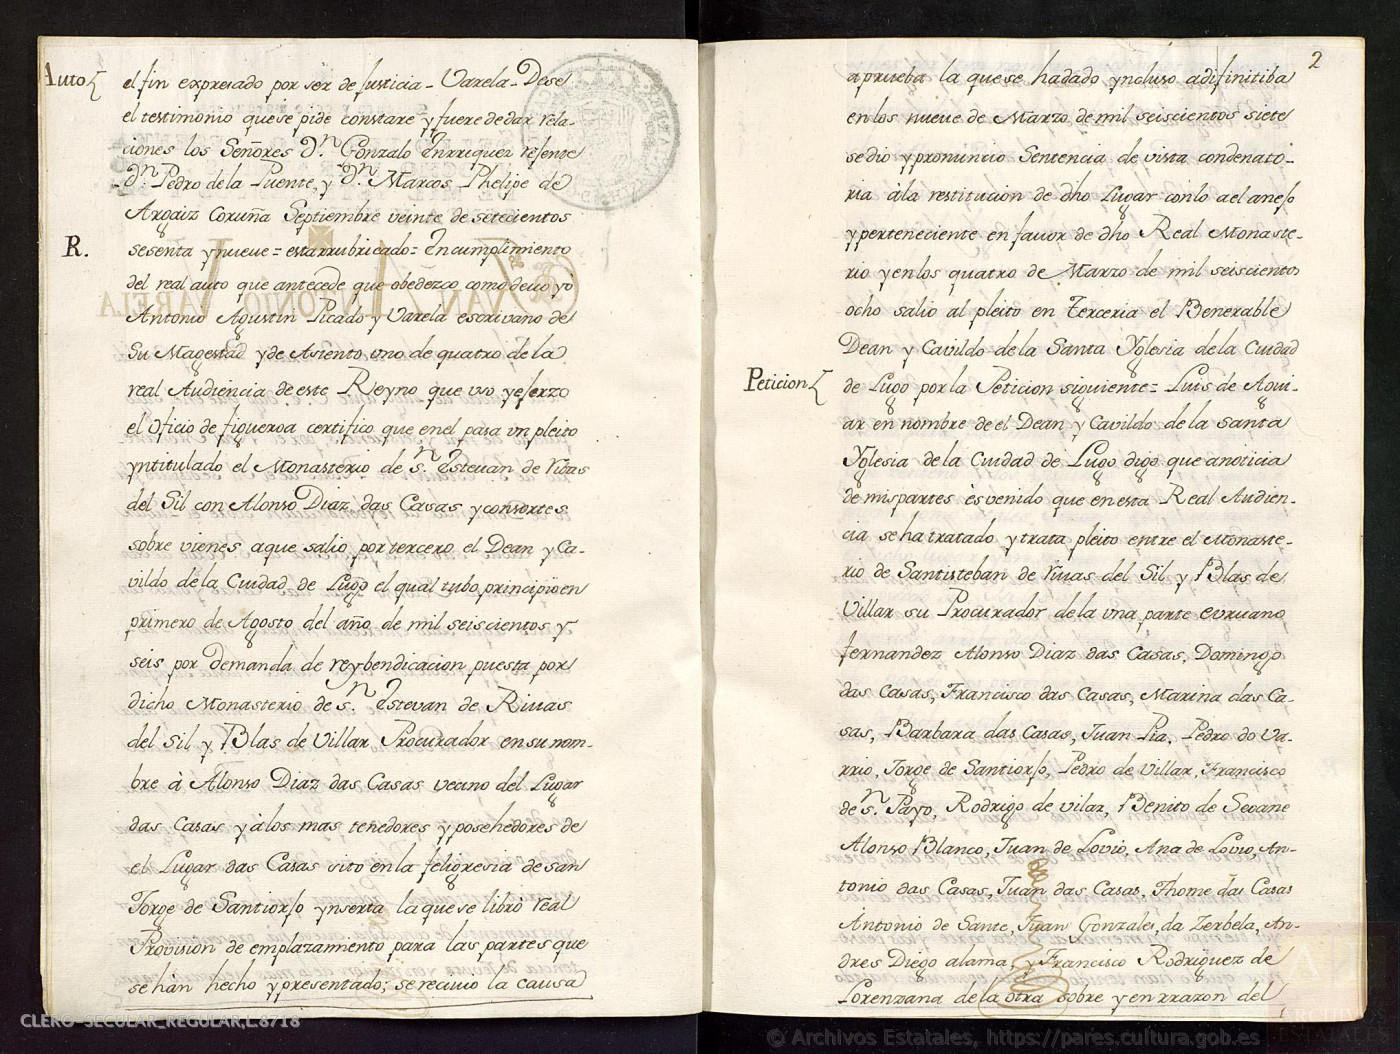 Auto
el fin expresado por ser de Justicia - Varela - Dese
el testimonio que se pide constare y fuere de dar rela-
ciones los Señores Dn. Gonzalo Enrriquez resente
Dn. Pedro de la Puente, y Dn. Marcos Phelipe de
Argaiz Coruña Septiembre veinte de setecientos
sesenta y nueve = esta rrubricado = En cumplimiento
R.
del real auto que antecede que obedezco como devo yo
Antonio Agustin Picado y Varela escrivano de
Su Magestad y de Asiento uno de quatro de la
real Audiencia de este Reyno que uso y exerzo
el oficio de figueroa certifico que en el pasa un pleito
yntitulado el Monasterio de Sn. Estevan de Rivas
del Sil con Alonso Diaz das Casas y consortes
sobre vienes a que salio por tercero el Dean y Ca-
vildo de la Cuidad de Lugo el qual tubo principio en
primero de Agosto del año de mil seiscientos y
seis por demanda de reybendicacion puesta por
dicho Monasterio de Sn. Estevan de Rivas
del Sil y Blas de Villar Procurador en su nom-
bre à Alonso Diaz das Casas vecino del Lugar
das Casas y àlos mas tenedores y posehedores de
el Lugar das Casas sito en la feligresia de san
Jorge de Santiorjo ynserta la que se librò real
Provision de emplazamiento para las partes que
se hàn hecho y presentado; se reciuio la causa
2
a prueba la que se ha dado yncluso a difinitiba
en los nueve de Marzo de mil seiscientos siete
se dio y pronuncio Sentencia de vista condenato-
ria àla restitucion de dho Lugar con lo a el anejo
y perteneciente en favor de dho Real Monaste-
rio y en los quatro de Marzo de mil seiscientos
ocho salio al pleito en Terceria el Benerable
Dean y Cavildo de la Santa Yglesia de la Cuidad
Peticion
de Lugo por la Peticion siguiente = Luis de Agui-
ar en nombre de el Dean y Cavildo de la santa
Yglesia de la Cuidad de Lugo digo que a noticia
de mis partes ès venido que en esta Real Audien-
cia se ha tratado y trata pleito entre el Monaste-
rio de Santisteban de rivas del Sil y Blas de
Villar su Procurador de la una parte
fernandez Alonso Diaz das Casas, Domingo
das Casas, Francisco das Casas, Marina das Ca-
sas, Barbara das Casas, Juan Pia, Pedro do Va-
rrio, Jorge de Santiorjo, Pedro de Villar, Francisco
de Sn. Payo, Rodrigo de vilar, Benito de Seoane
Alonso Blanco, Juan de Lovio, Ana de Lovio, An-
tonio das Casas, Juan das Casas, Thome das Casas
Antonio de Sante, Juan Gonzales, da Zerbela, An-
dres Diego alama, y Francisco Rodriguez de
Lorenzana de la otra sobre y en rrazon del
CLERO-SECULAR_REGULAR,L.8718
© Archivos Estatales, https://pares.cultura.gob.es